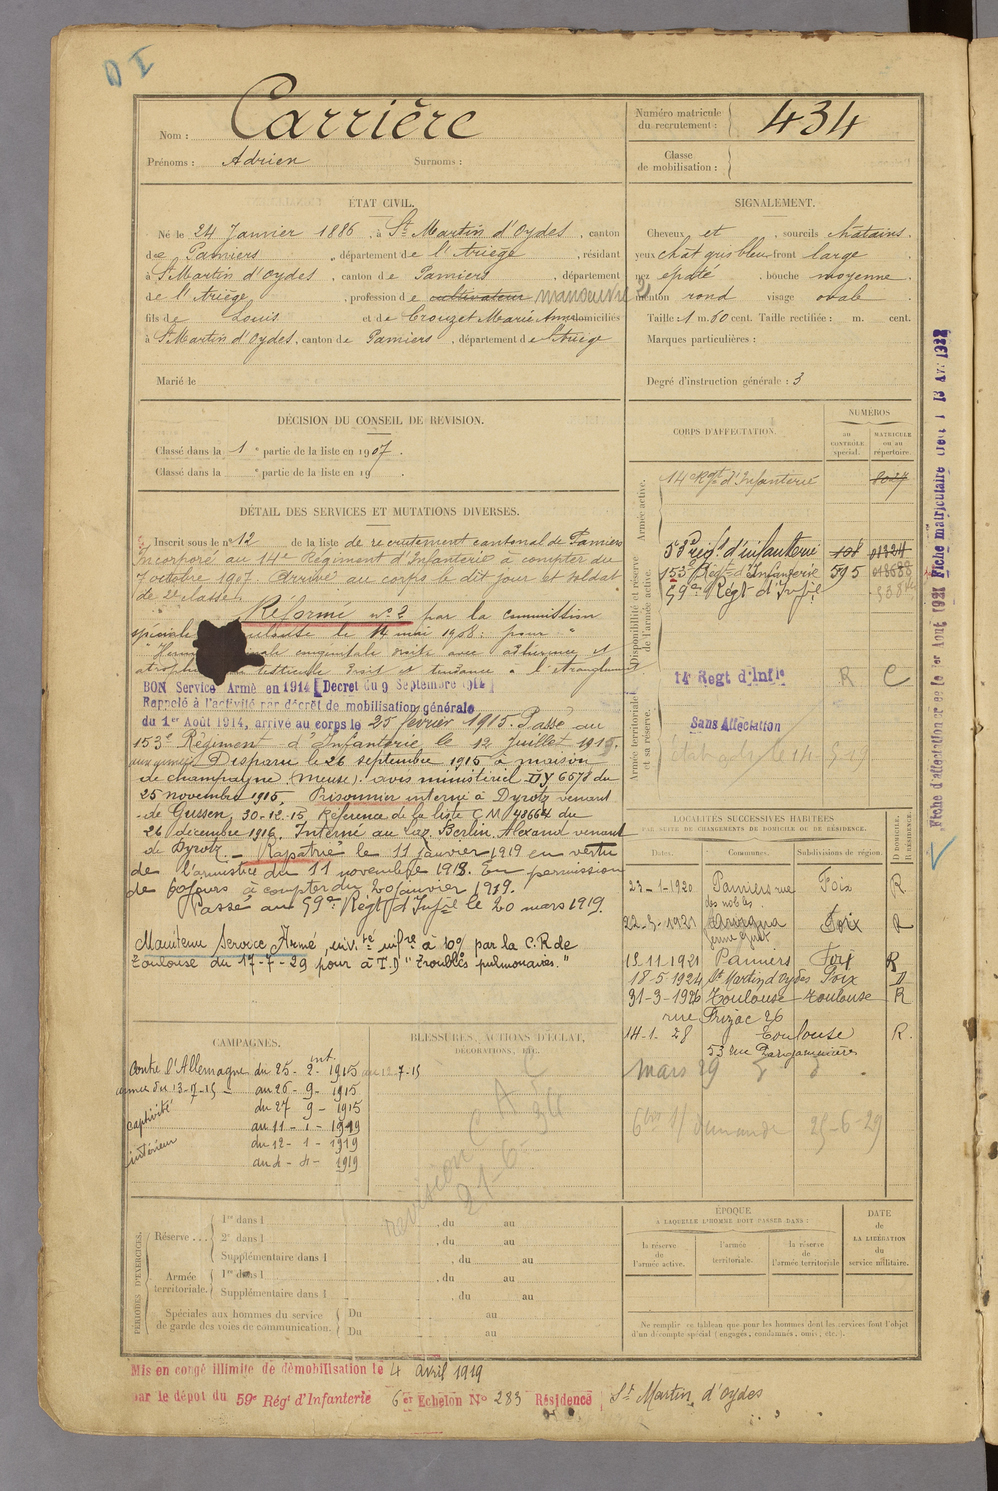 D I
Nom : Carrière
Prénoms : Adrien Surnoms :
Numéro matricule
du recrutement : 434
Classe
de mobilisation :
ÉTAT CIVIL.
Né le 24 Janvier 1886, à St Martin d'Oydes, canton
de Pamiers, département de l'Ariège, résidant
à St Martin d'Oydes, canton de Pamiers, département
de l'Ariège, profession de cultivateur manoeuvre
fils de Louis et de Crouzet Marie Anne domiciliés
à St Martin d'Oydes, canton de Pamiers, département de l'Ariège
Marié le
SIGNALEMENT.
Cheveux et , sourcils châtains.
yeux chât gris bleu front large
nez épaté , bouche moyenne
menton rond visage ovale
Taille : 1 m. 60 cent. Taille rectifiée : m. cent.
Marques particulières :
Degré d'instruction générale : 3
DÉCISION DU CONSEIL DE REVISION.
Classé dans la 1e partie de la liste en 1907.
Classé dans la e partie de la liste en 19 .
DÉTAIL DES SERVICES ET MUTATIONS DIVERSES.
Inscrit sous le n° 12 de la liste de recrutement cantonal de Pamiers
Incorporé au 14e Régiment d'Infanterie à compter du
7 octobre 1907 Arrivé au corps le dit jour et soldat
de 2e classe.
Réformé n° 2 par la commission
spéciale le 14 mai 1908: pour "
congénitale droite avec adhérence et
testicule droit et tendance à l'étranglement
BON Service Armé en 1914 [Decret du 9 Septembre 1914]
Rappelé à l'activité par décret de mobilisation générale
du 1er Août 1914, arrivé au corps le 25 février 1915. Passé au
153e Régiment d'Infanterie le 12 Juillet 1915.
aux armées Disparu le 26 septembre 1915 à maison
de champagne (Meuse). avis ministériel DY 6578 du
25 novembre 1915. Prisonnier interné à Dyrotz venant
de Geissen, 30-12-15, Référence de la liste C M 48664 du
26 décembre 1916. Interné au Laz. Berlin, Alexand venant
de Dyrotz. - Rapatrié le 11 janvier 1919 en vertu
de l'armistice du 11 novembre 1918. En permission
de 60 jours à compter du 20 janvier 1919.
Passé au 59e Régt d'Infie le 20 mars 1919.
Maintenu Service Armé, inv. té infre à 10% par la C.R de
Toulouse du 17-7-29 pour à T.D "troubles pulmonaires."
CORPS D'AFFECTATION.
NUMÉROS
au
CONTRÔLE
spécial.
MATRICULE
ou au
répertoire.
Armée active.
14e Rgt d'Infanterie 8027
Disponibilité et réserve
de l'armée active.
53e régt d'infanterie 107 01324
153e Régt d'Infanterie 595 013688
59e Régt d'Infie
Armée territoriale
et sa réserve.
14e Regt d'Infie R C
Sans Affectation
LOCALITÉS SUCCESSIVES HABITÉES
PAR SUITE DE CHANGEMENTS DE DOMICILE OU DE RÉSIDENCE.
Dates. Communes. Subdivisions de région. D DOMICILE. R RÉSIDENCE.
23-1-1920 Pamiers rue Foix R
des nobles.
22-3-1921 Foix R
15.11.1921 Pamiers Foix R
18-5-1924 St Martin d'Oydes Foix D
31-3-1926 Toulouse Toulouse R
rue Frizac 26
14-1-28 Toulouse R.
53 rue Pargaminières
mars 29
demande 25-6-29
CAMPAGNES.
Contre l'Allemagne int. du 25-2-1915 au 12-7-15
armées du 13-7-15 - au 26-9-1915
captivité du 27 9-1915
au 11-1-1919
intérieur du 12-1-1919
au 4-4-1919
BLESSURES, ACTIONS D'ÉCLAT,
DÉCORATIONS, ETC.
revision
21-6-
PÉRIODES D'EXERCICES.
Réserve . . .
1re dans l , du au
2e dans l , du au
Supplémentaire dans l , du au
Armée
territoriale.
1re dans l , du au
Supplémentaire dans l , du au
Spéciales aux hommes du service
de garde des voies de communication.
Du au
Du au
ÉPOQUE
A LAQUELLE L'HOMME DOIT PASSER DANS :
la réserve
de
l'armée active.
l'armée
territoriale.
la réserve
de
l'armée territoriale
DATE
de
LA LIBÉRATION
du
service militaire.
Ne remplir ce tableau que pour les hommes dont les services font l'objet
d'un décompte spécial (engagés, condamnés, omis, etc.).
Mis en congé illimité de démobilisation le 4 avril 1919
par le dépot du 59e Régt d'Infanterie 6er Echelon No 283 Résidence St Martin d'Oydes